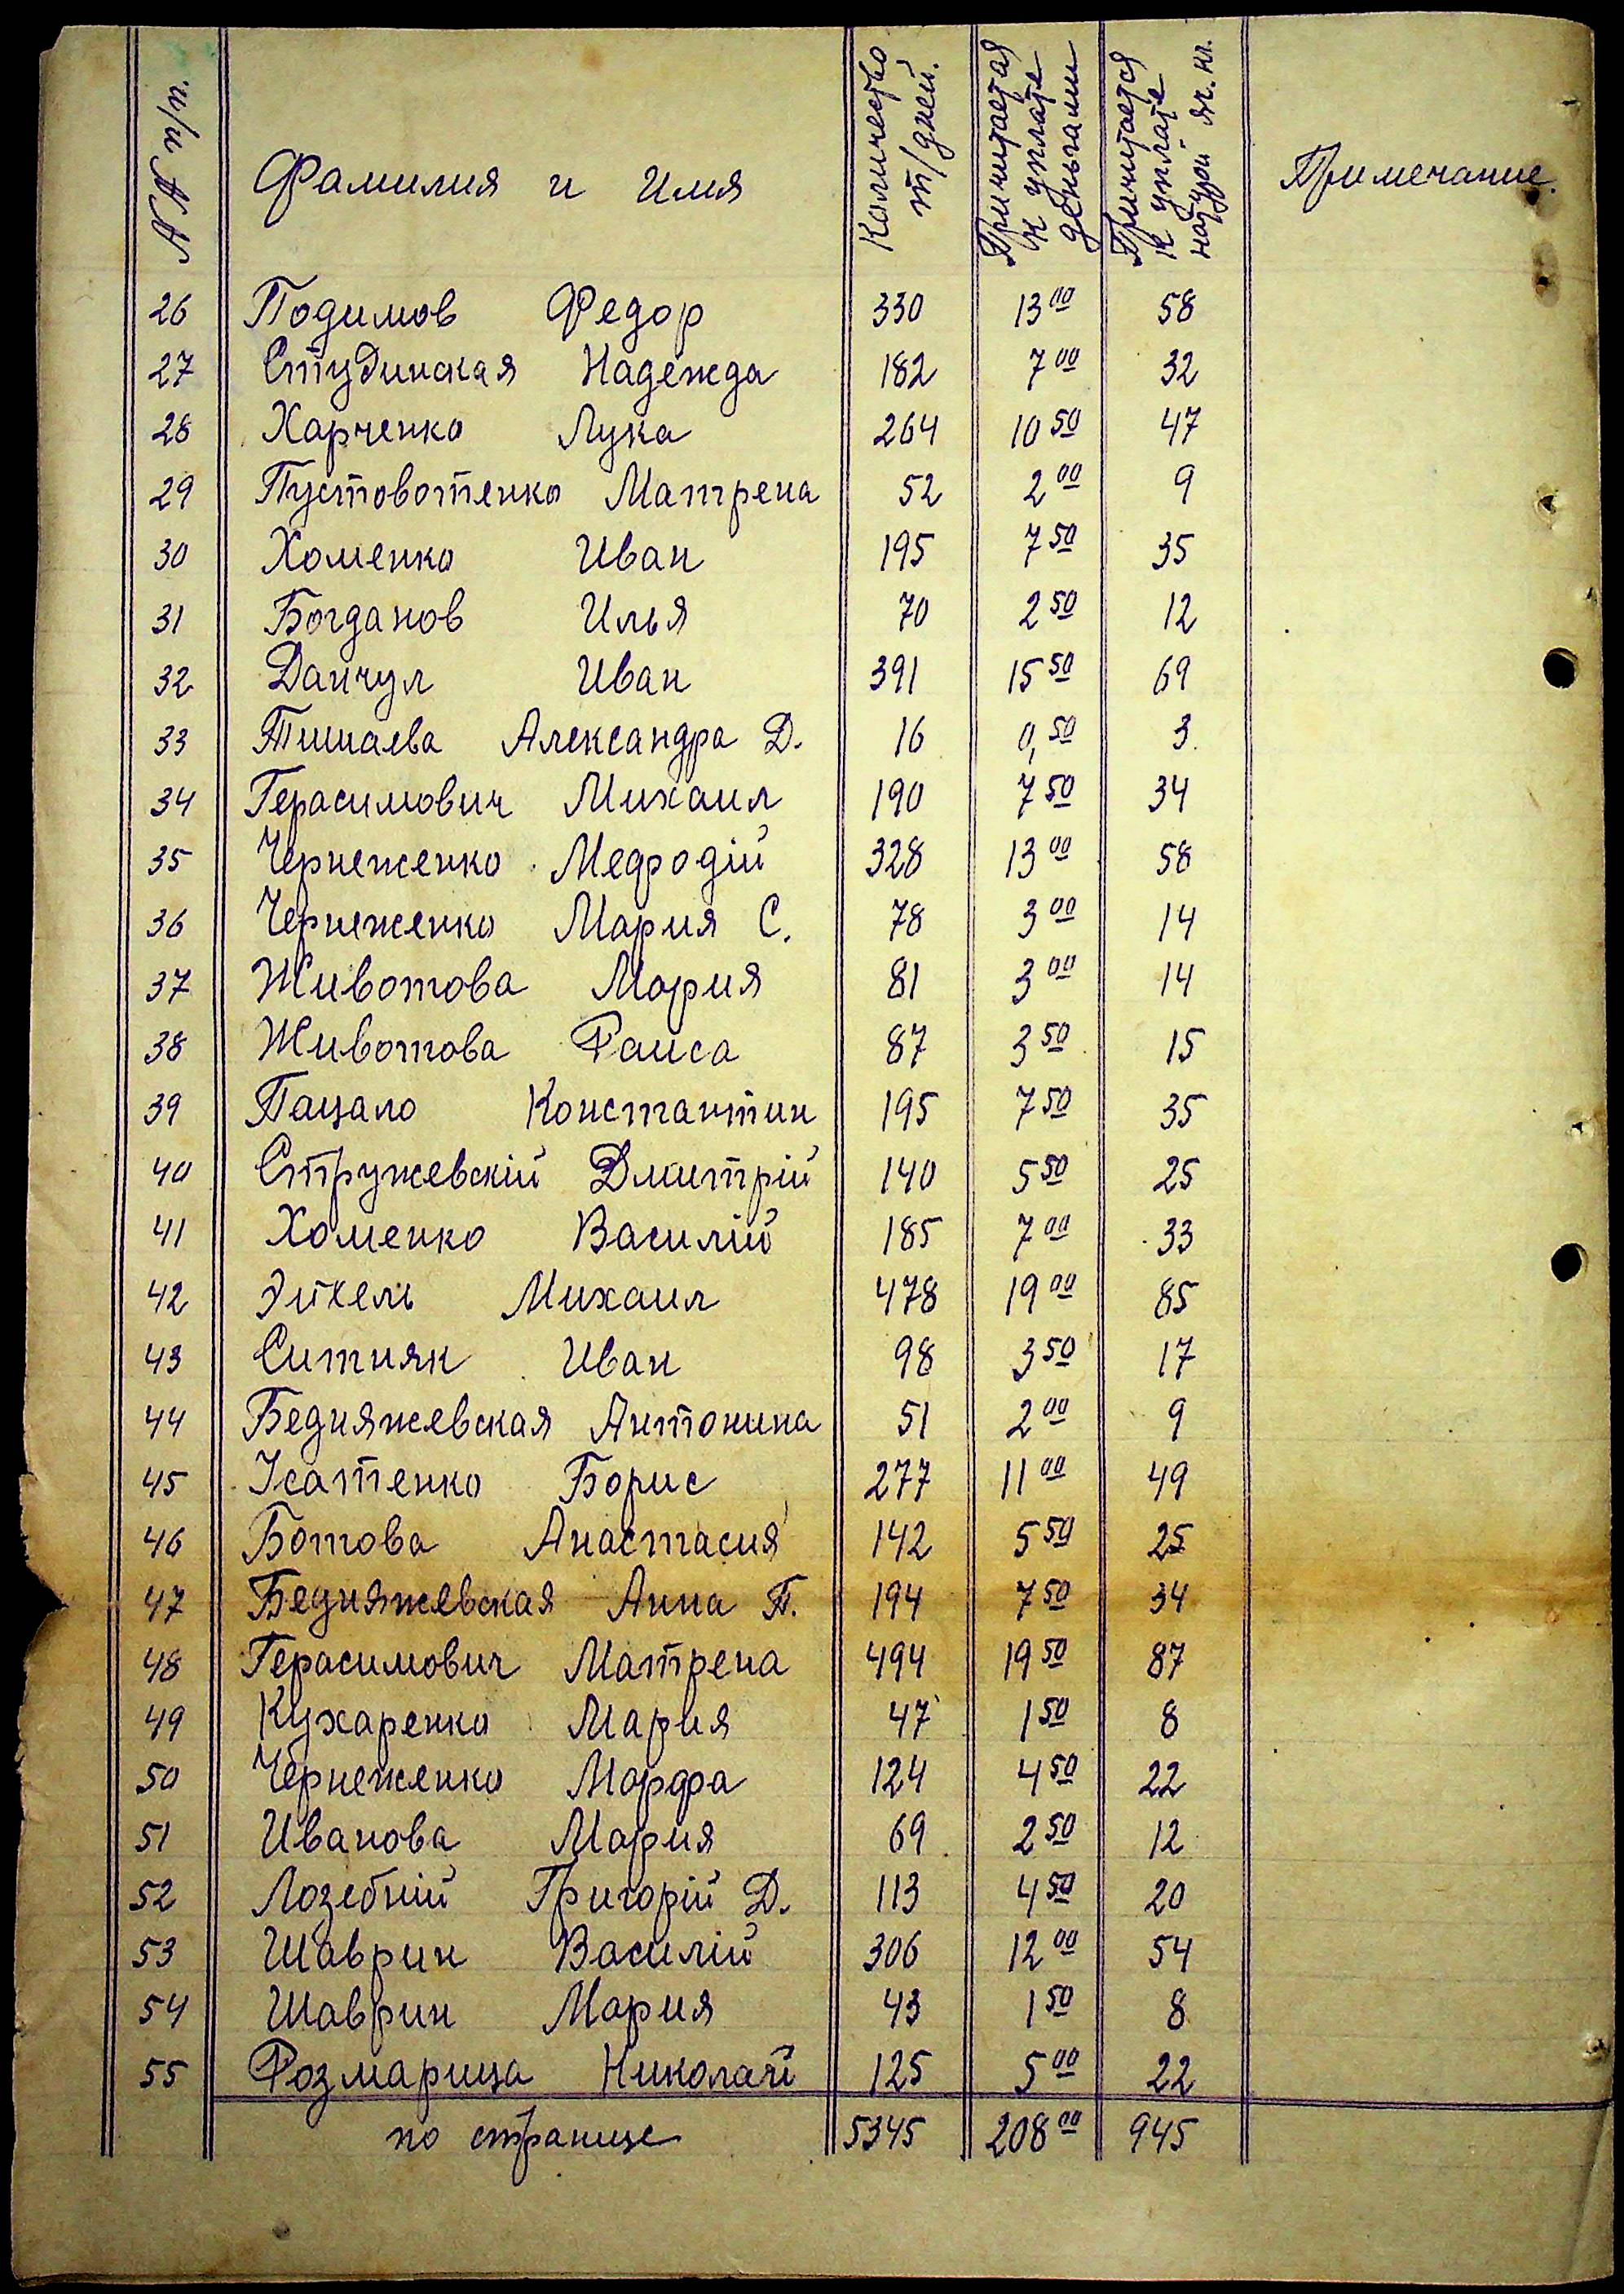 №№ п/п. Фамилия и Имя Количество т/дней. Причитается к уплате деньгами Причитается к уплате натурой яч. кг. Примечание.
26 Подимов Федор 330 13 00 58
27 Студинская Надежда 182 7 00 32
28 Харченко Лука 264 10 50 47
29 Пустовотенко Матрена 52 2 00 9
30 Хоменко Иван 195 7 50 35
31 Богданов Илья 70 2 50 12
32 Данчул Иван 391 15 50 69
33 Тишаева Александра Д. 16 0,50 3
34 Герасимович Михаил 190 7 50 34
35 Чернеженко Мефодій 328 13 00 58
36 Чернеженко Мария С. 78 3 00 14
37 Животова Мария 81 3 00 14
38 Животова Раиса 87 3 50 15
39 Пацало Константин 195 7 50 35
40 Стружевскій Дмитрій 140 5 50 25
41 Хоменко Василій 185 7 00 33
42 Михаил 478 19 00 85
43 Ситняк Иван 98 3 50 17
44 Бедняжевская Антонина 51 2 00 9
45 Усатенко Борис 277 11 00 49
46 Ботова Анастасия 142 5 50 25
47 Бедняжевская Анна П. 194 7 50 34
48 Герасимович Матрена 494 19 50 87
49 Кухаренко Мария 47 1 50 8
50 Чернеженко Марфа 124 4 50 22
51 Иванова Мария 69 2 50 12
52 Лозебній Григорій Д. 113 4 50 20
53 Шаврин Василій 306 12 00 54
54 Шаврин Мария 43 1 50 8
55 Розмарица Николай 125 5 00 22
по странице 5345 208 00 945